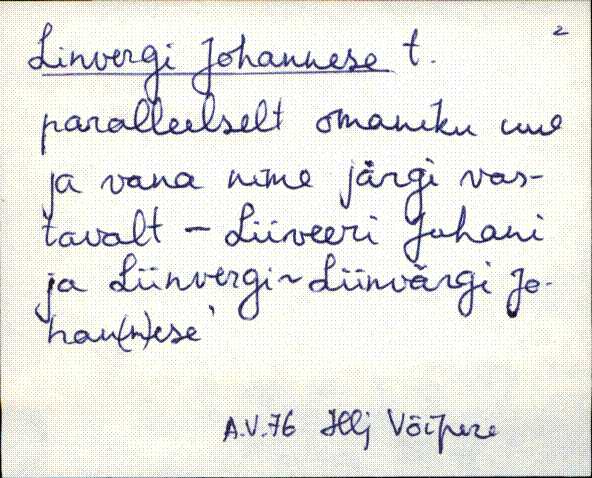 2
Linvergi Johannese t.
paralleelselt omaniku uue
ja vana nime järgi vas-
tavalt – Liiveeri Juhani
ja Liinvergi ~ Liinvärgi Jo-
han(n)ese'
A.V.76 Hlj Võipere